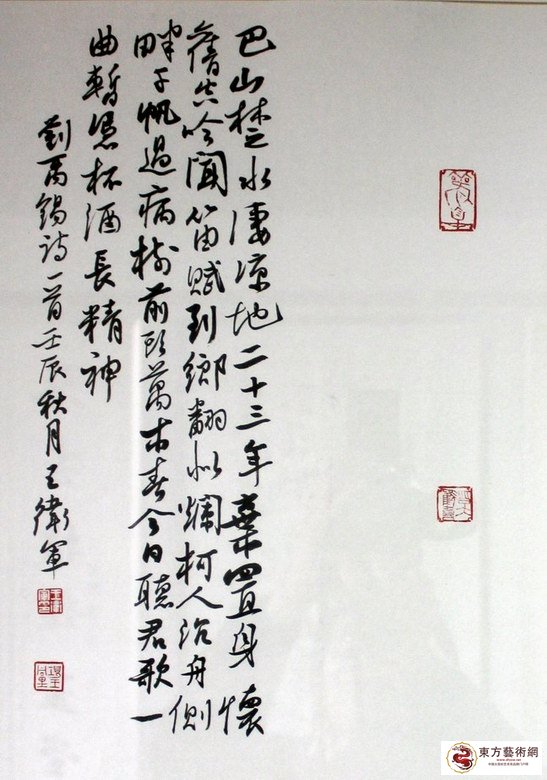 巴山楚水淒涼地二十三年棄置身懷
舊空吟聞笛賦到鄉翻似爛柯人沉舟側
畔千帆過病樹前頭萬木春今日聽君歌一
曲暫憑杯酒長精神
劉禹錫詩一首壬辰秋月王衛軍
東方藝術網